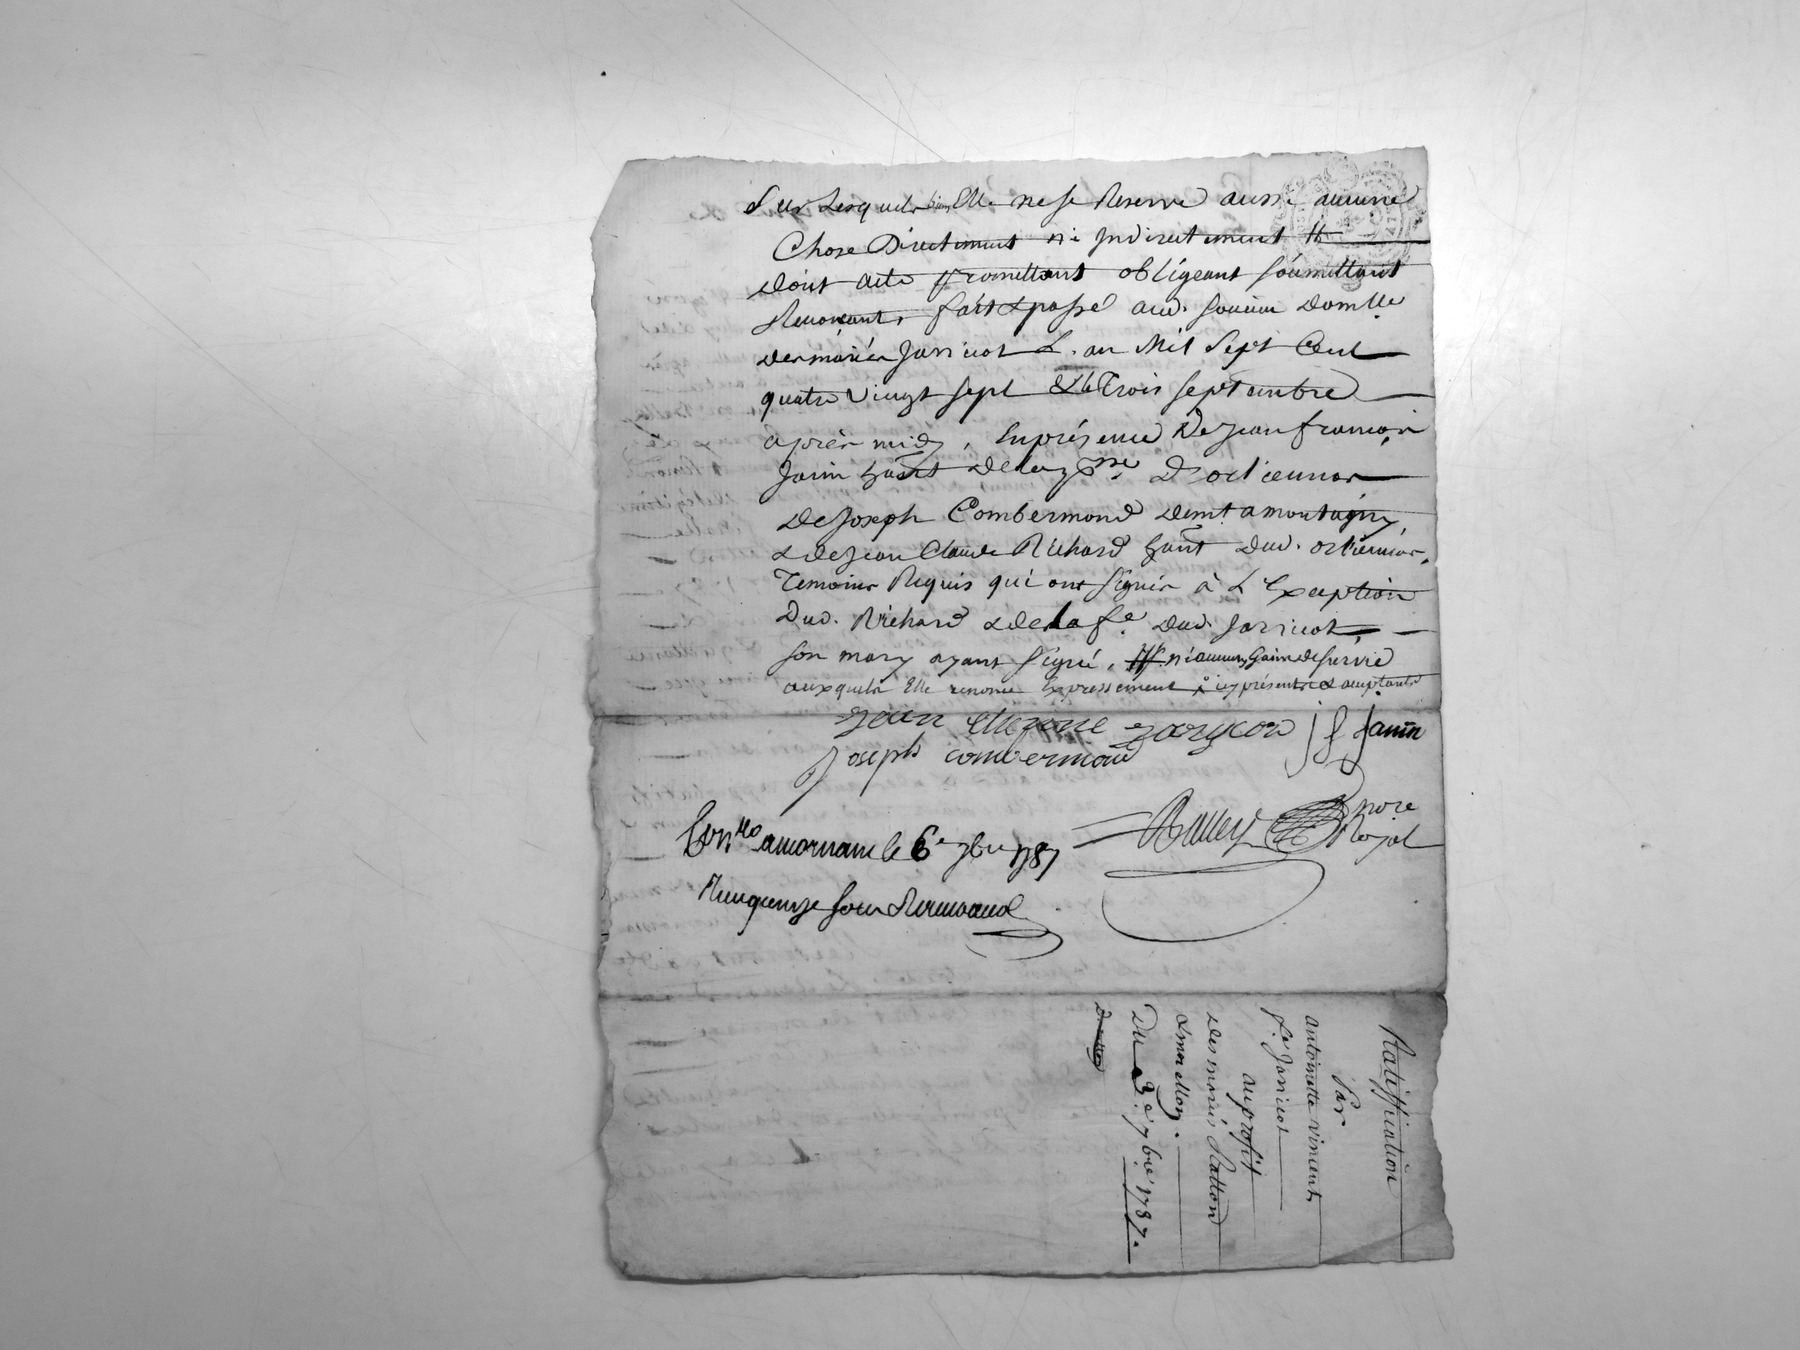 Sur Lesquels biens Elle ne se Reserve aussi aucune
Chose Directement ni Indirectement //
dont acte promettant obligeant soumettant
Renonçant, fait & passé aud. Soucieu domlle
des mariés Jarricot L. an Mil Sept Cent
quatre vingt sept & le Trois septembre
après midy, En présence De Jean françois
Janin hant de la psse D'orliennas
De Joseph Combermond demt a montagny,
& de Jean Claude Richard hant dud. orliennas,
Temoins Requis qui ont signés à L'Exception
Dud. Richard & de la fe dud. Jarricot,
son mary ayant signé, ni aucuns Gains de survie
auxquels Elle renonce Expressement
jean etienne jarycon j f Janin
Joseph combermond
nore
Royal
Con.lé a mornant le 6e 7bre 1787
Reçu quinze sous
Ratiffication
Par
antoinette viment,
fe Jarricot
au profit
des mariés Ratton
& morellon.
Du 3e 7bre 1787.